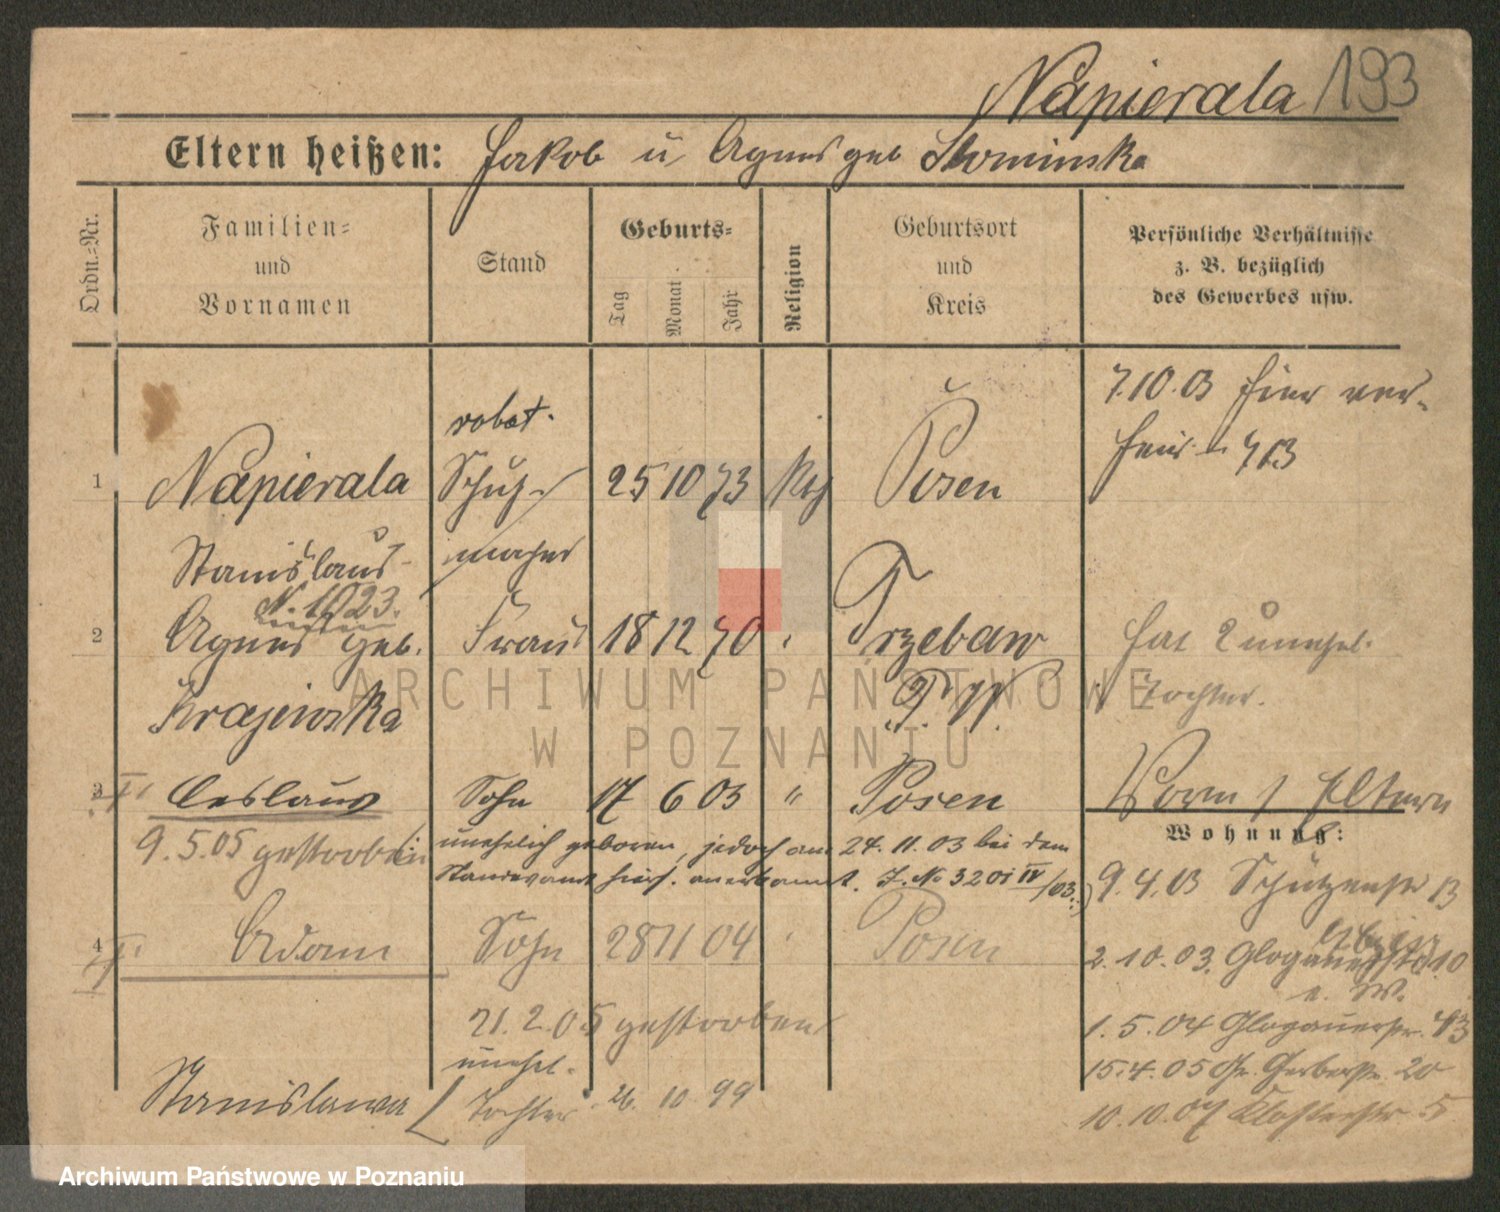 Napierala 193
Eltern heißen: Jakob u Agnes geb Slominska
Ordn.-Nr.
Familien- und Vornamen
Stand
Geburts-
Tag Monat Jahr
Religion
Geburtsort und Kreis
Persönliche Verhältnisse
z. B. bezüglich
des Gewerbes usw.
7.10.03 hier ver-
robot.
1 Napierala Schuh- 25 10 73 Posen
Stanislaus macher
N. 1023.
2 Agnes geb. Frau 18 12 70 Trzebaw hat 2 unehel.
Krajewska P. W. Tochter.
3 Ceslaus Sohn 17 6 03 " Posen Vorm / Eltern
Wohnung:
9.5.05 gestorben unehelich geboren, jedoch am 24.11.03 bei dem
Standesamt hies. anerkannt. J. No 3201 IV/03.
9.4.03 Schützenstr 13
4 Adam Sohn 28 11 04 Posen
2.10.03. Glogauerstr 10
21.2.05 gestorben
1.5.04 Glogauerstr. 43
unehel.
15.4.05 Gr. Gerberstr. 20
Stanislawa Tochter 26. 10 99
10.10.07 Klosterstr. 5
ARCHIWUM PAŃSTWOWE
W POZNANIU
Archiwum Państwowe w Poznaniu